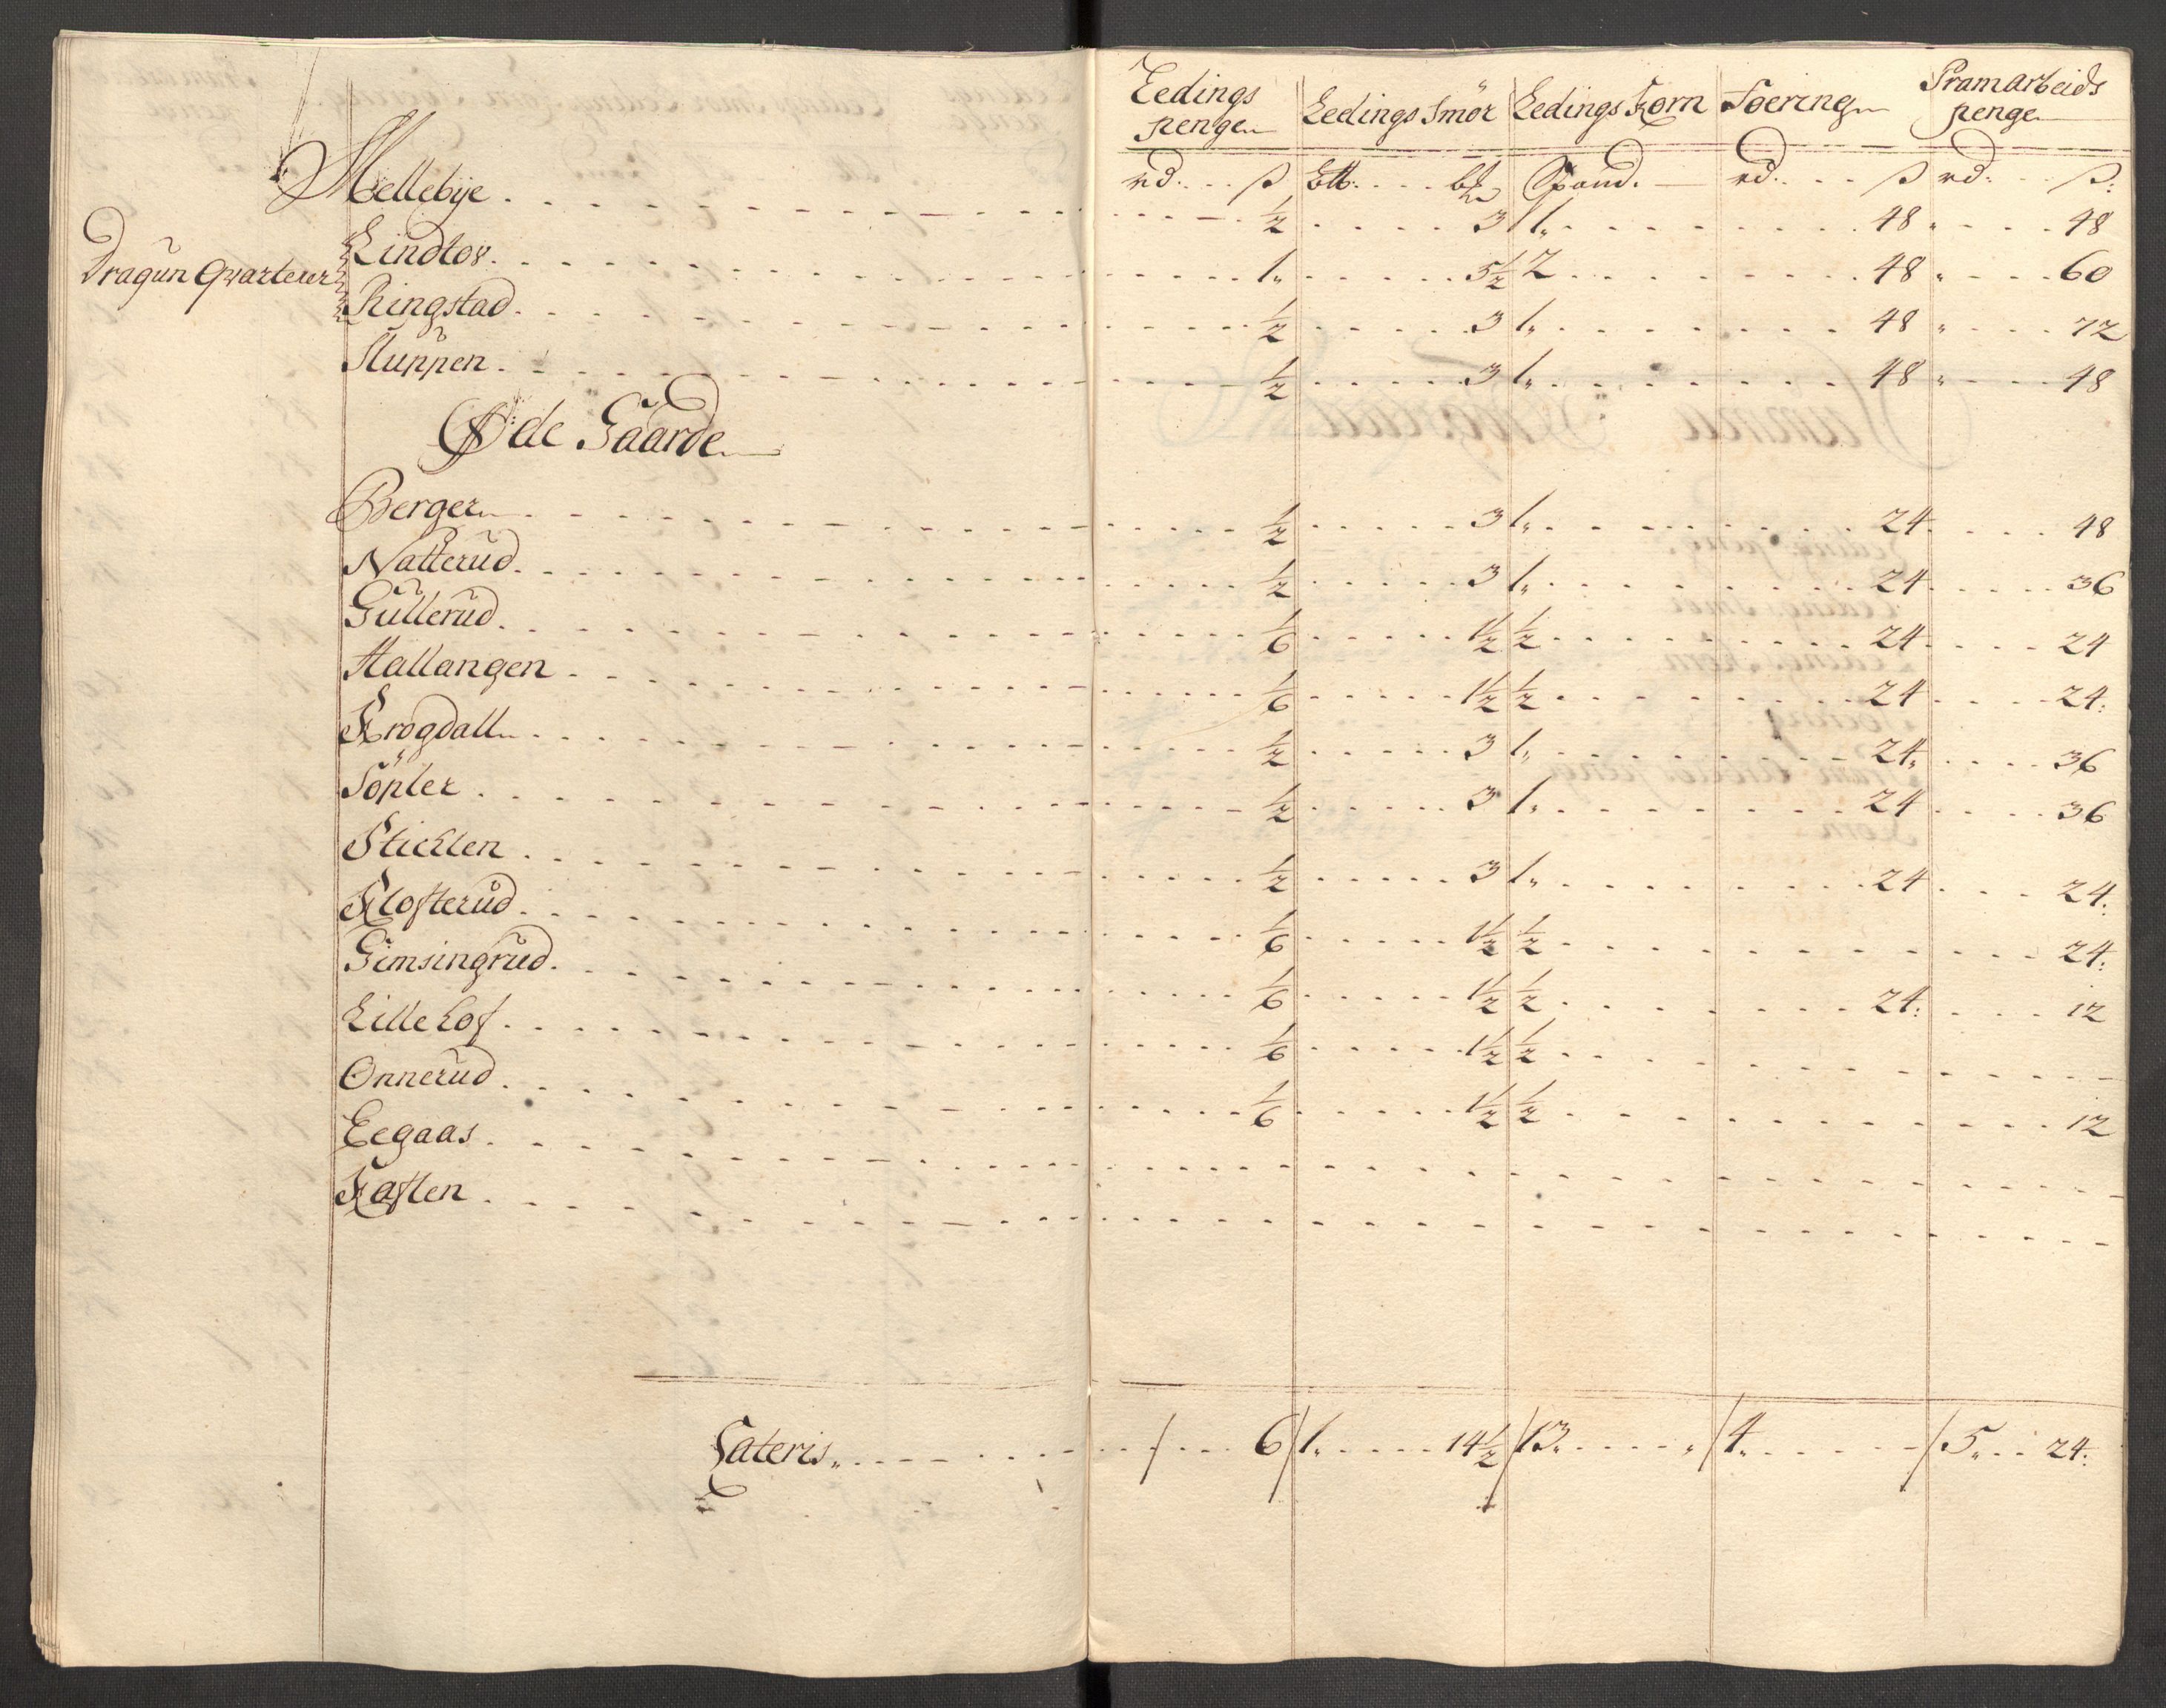 Ledings penge Ledings Smör Ledings Korn Foering Pramarbeids penge
rd: ß btt: bl Spand. rd. ß rd: ß:
Mellebÿe ½ 3 1„ 48 „ 48
Dragun Qvarterer Lindtor 1„ 5½ 2 48 „ 60
Ringstad ½ 3 1„ 48 „ 72
Huppen ½ 3 1„ 48 „ 48
Øde Gaarde
Berger ½ 3 1„ 24 48
Natterud ½ 3 1„ 24 36
Gullerud ⅙ 1½ ½ 24 24
Hallangen ⅙ 1½ ½ 24 24:
Krogdall ½ 3 1„ 24„ 36
Töpler ½ 3 1„ 24 36
Sticklen ½ 3 1„ 24 24:
Klofterud ⅙ 1½ ½ 24:
Gimsingrud ⅙ 1½ ½ 24: 12
Lille Lof ⅙ 1½ ½
Onnerud ⅙ 1½ ½ 12
Eegaas
Kaften
Lateris„ 6 1„ 14½ 13„ „ 4„ 5„ 24: